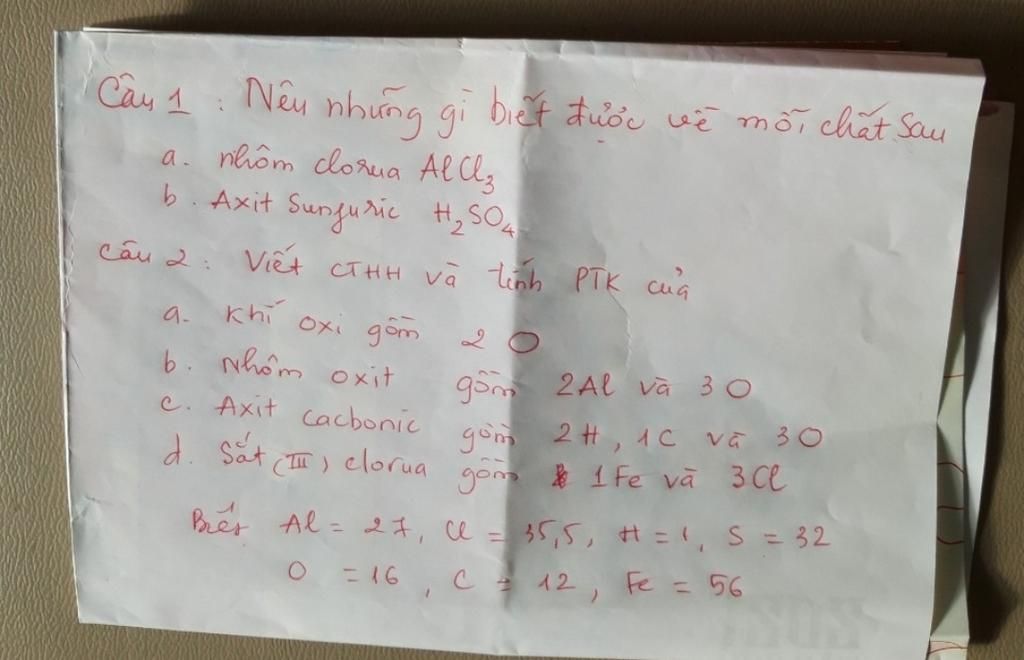 Câu 1 : Nêu những gì biết được về mỗi chất sau
a. nhôm clorua AlCl₃
b. Axit Sunguric H₂SO₄
Câu 2 : Viết CTHH và tính PTK của
a. Khí oxi gồm 2 O
b. Nhôm oxit gồm 2Al và 3 O
c. Axit cacbonic gồm 2H, 1C và 3O
d. Sắt (III) clorua gồm 1Fe và 3Cl
Biết Al = 27, Cl = 35,5, H = 1, S = 32
O = 16, C = 12, Fe = 56